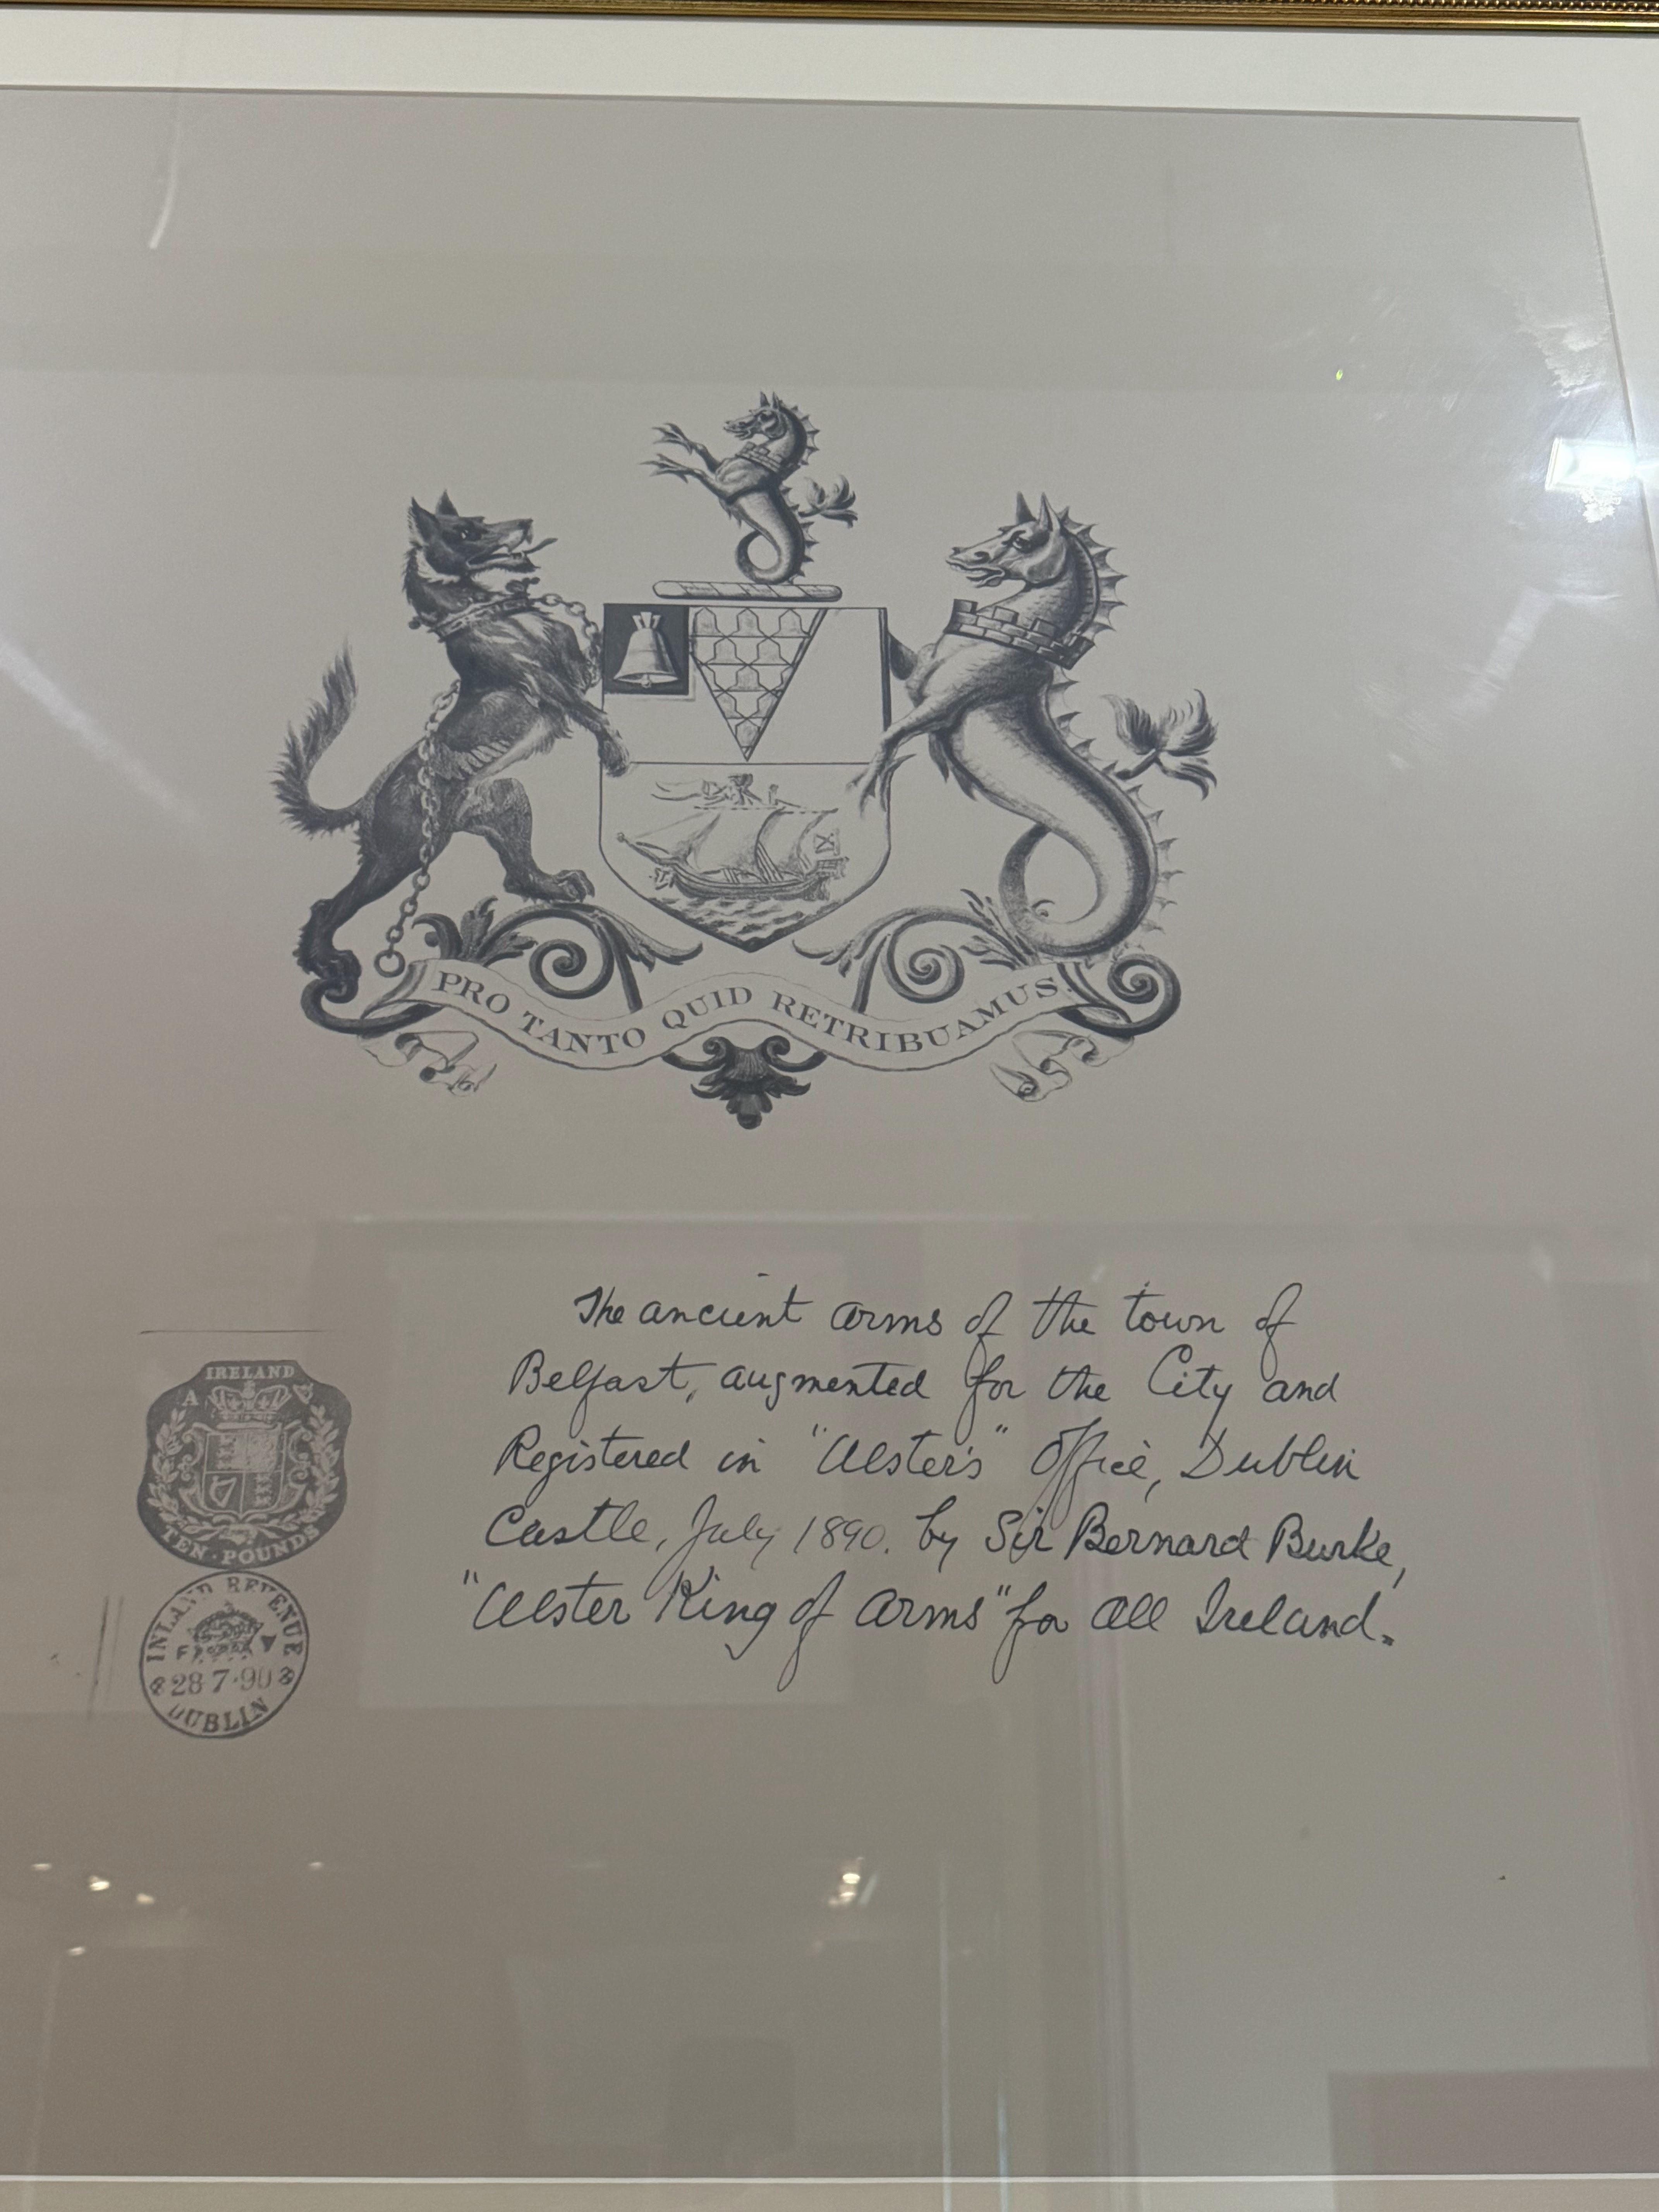 PRO TANTO QUID RETRIBUAMUS.
The ancient arms of the town of
Belfast, augmented for the City and
Registered in "Ulster's" Office, Dublin
Castle, July 1890. by Sir Bernard Burke,
"Ulster King of Arms" for all Ireland.
IRELAND
A
TEN · POUNDS
INLAND REVENUE
28·7·90
DUBLIN